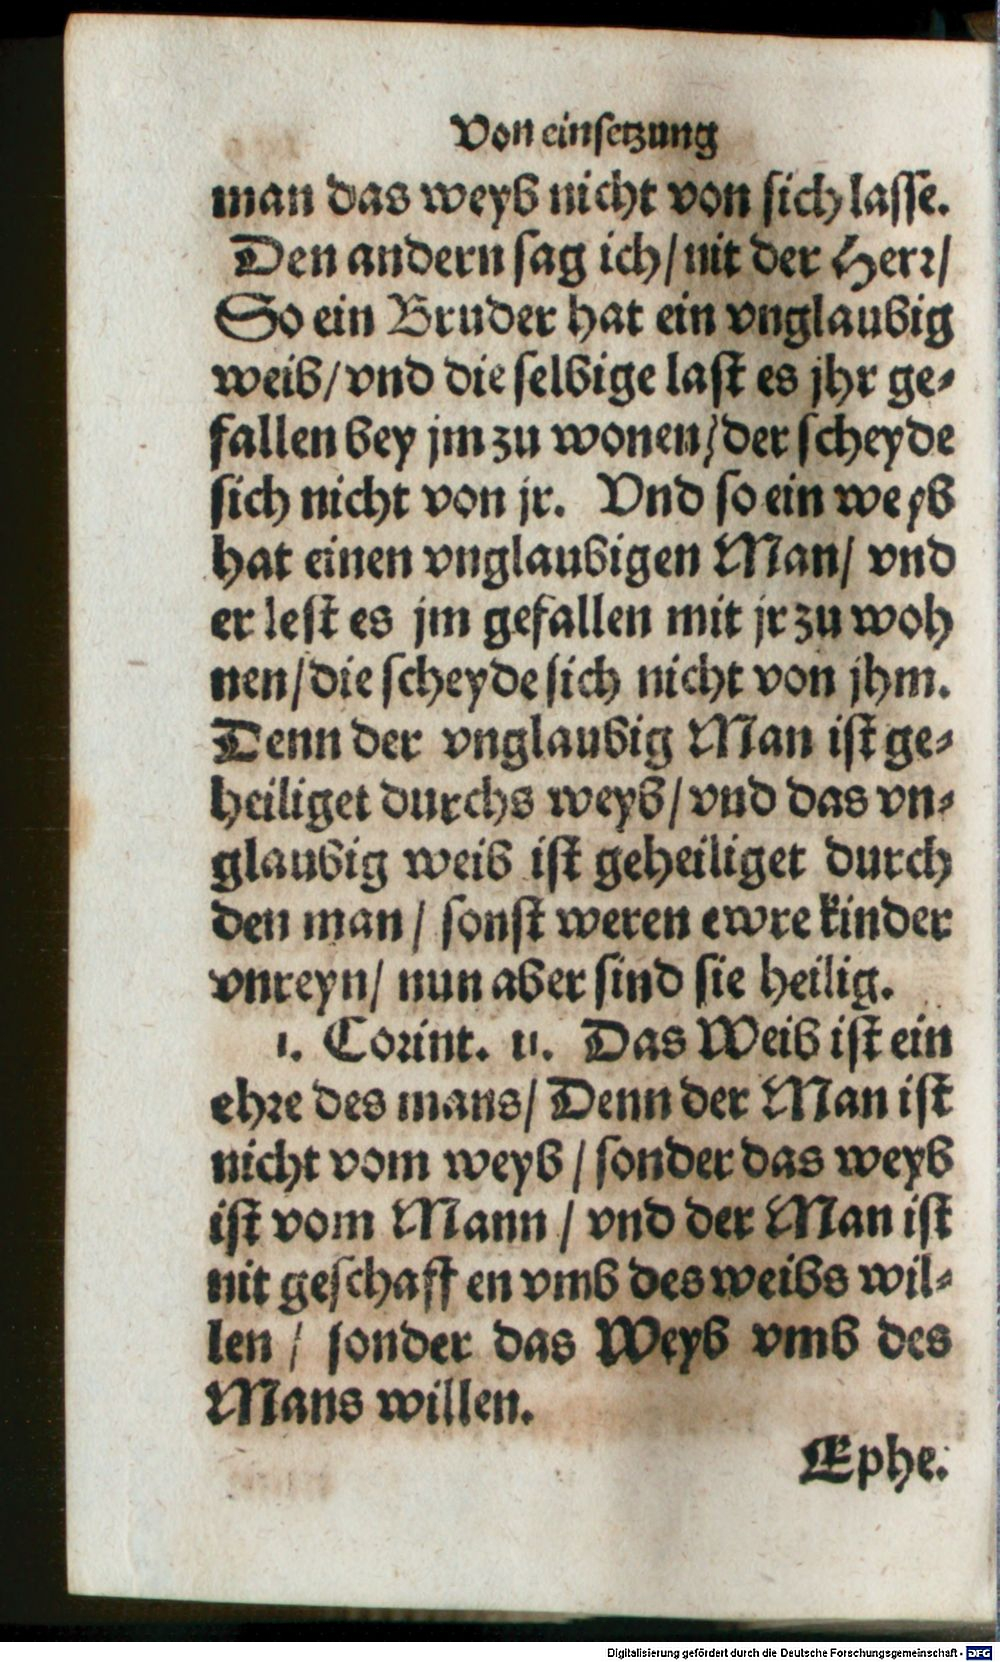 Von einsetzung
man das weyb nicht von sich lasse.
Den andern sag ich/ nit der Herr/
So ein Bruder hat ein vnglaubig
weib/ vnd die selbige last es jhr ge⸗
fallen bey jm zu wonen/ der scheyde
sich nicht von jr. Vnd so ein weyb
hat einen vnglaubigen Man/ vnd
er lest es jm gefallen mit jr zu woh
nen/ die scheyde sich nicht von jhm.
Denn der vnglaubig Man ist ge⸗
heiliget durchs weyb/ vnd das vn⸗
glaubig weib ist geheiliget durch
den man/ sonst weren ewre kinder
vnreyn/ nun aber sind sie heilig.
1. Corint. 11. Das Weib ist ein
ehre des mans/ Denn der Man ist
nicht vom weyb/ sonder das weyb
ist vom Mann/ vnd der Man ist
nit geschaffen vmb des weibs wil⸗
len/ sonder das Weyb vmb des
Mans willen.
Ephe.
Digitalisierung gefördert durch die Deutsche Forschungsgemeinschaft - DFG